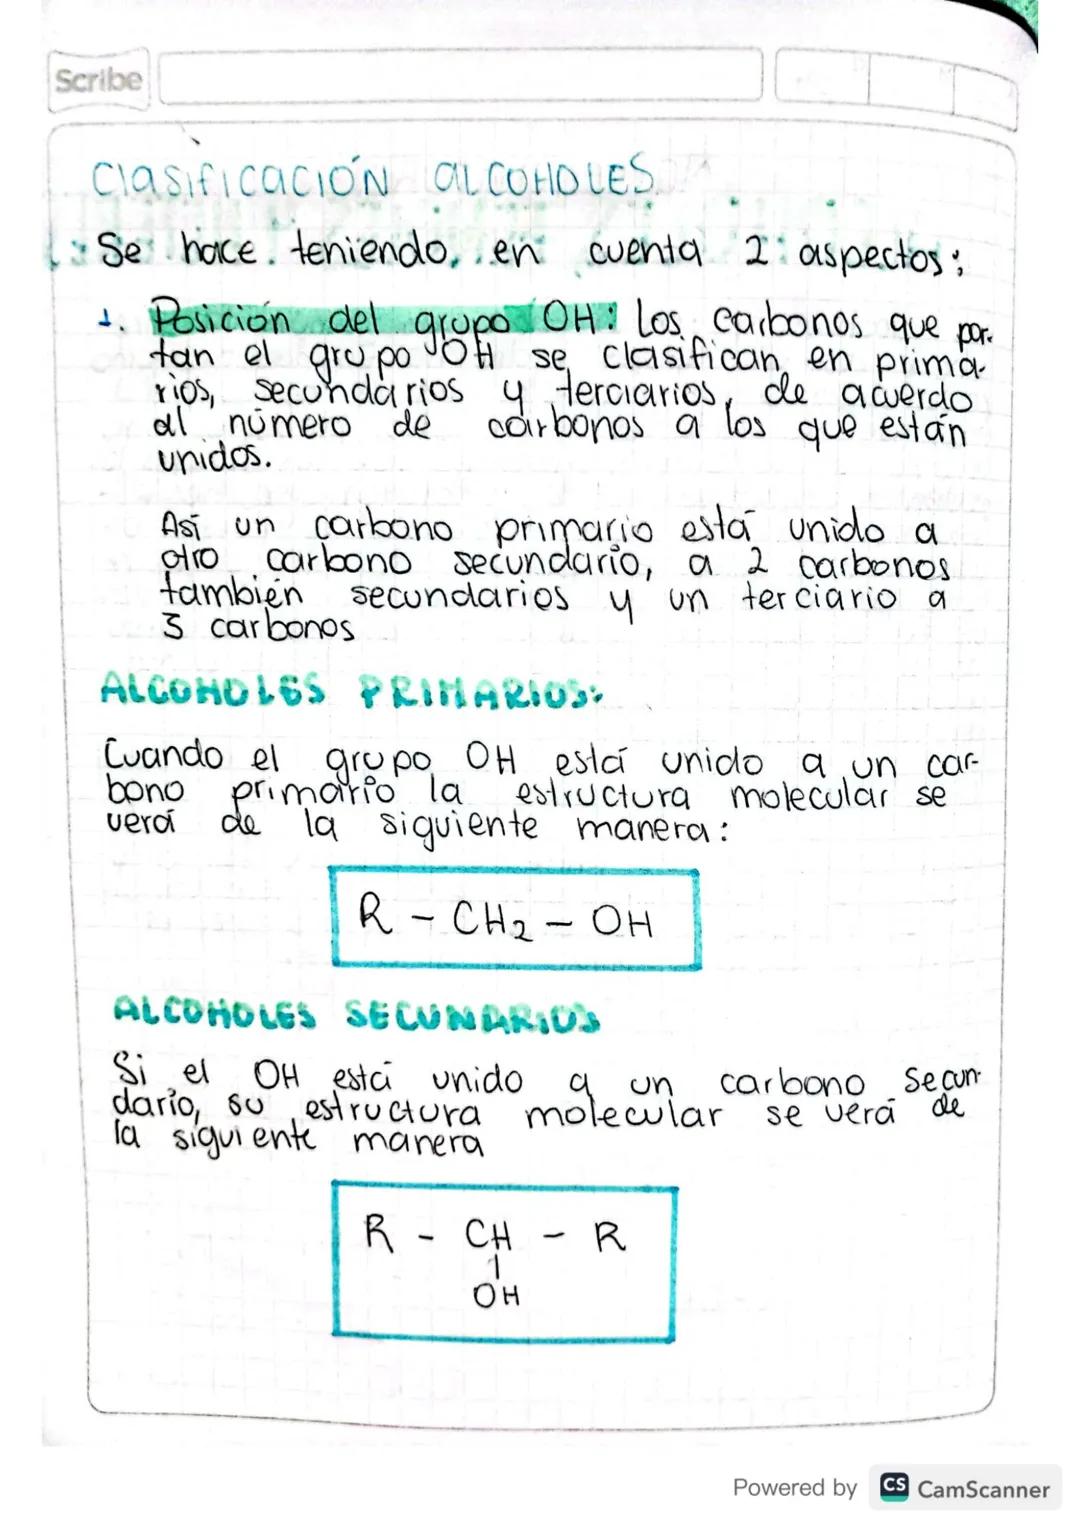 Scribe
Clasificación alcoholes
Se hace teniendo en cuenta 2 aspectos:
1. Posición del grupo OH: Los carbonos que por-
tan el grupo OH se clasifican en prima-
rios, secundarios y terciarios, de acuerdo
al número de carbonos a los que están
unidos.
Así un carbono primario está unido a
otro carbono secundario, a 2 carbonos
también secundarios y un terciario a
3 carbonos
ALCOHOLES PRIMARIOS:
Cuando el grupo OH está unido a un car-
bono primario la estructura molecular se
verá de la siguiente manera:
R - CH2 - OH
ALCOHOLES SECUNARIOS
Si el OH está unido a un carbono secun-
dario, su estructura molecular se verá de
la siguiente manera
R - CH - R
OH
Powered by CS CamScanner